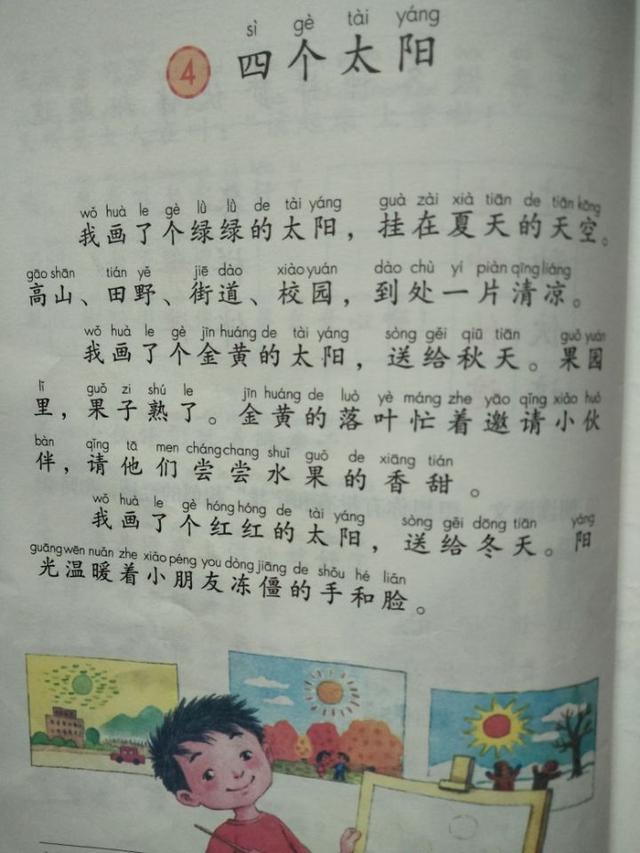 sì gè tài yáng
4 四个太阳
wǒ huà le gè lǜ lǜ de tài yáng guà zài xià tiān de tiān kōng
我画了个绿绿的太阳，挂在夏天的天空。
gāo shān tián yě jiē dào xiào yuán dào chù yí piàn qīng liáng
高山、田野、街道、校园，到处一片清凉。
wǒ huà le gè jīn huáng de tài yáng sòng gěi qiū tiān guǒ yuán
我画了个金黄的太阳，送给秋天。果园
lǐ guǒ zi shú le jīn huáng de luò yè máng zhe yāo qǐng xiǎo huǒ
里，果子熟了。金黄的落叶忙着邀请小伙
bàn qǐng tā men cháng chang shuǐ guǒ de xiāng tián
伴，请他们尝尝水果的香甜。
wǒ huà le gè hóng hóng de tài yáng sòng gěi dōng tiān yáng
我画了个红红的太阳，送给冬天。阳
guāng wēn nuǎn zhe xiǎo péng you dòng jiāng de shǒu hé liǎn
光温暖着小朋友冻僵的手和脸。